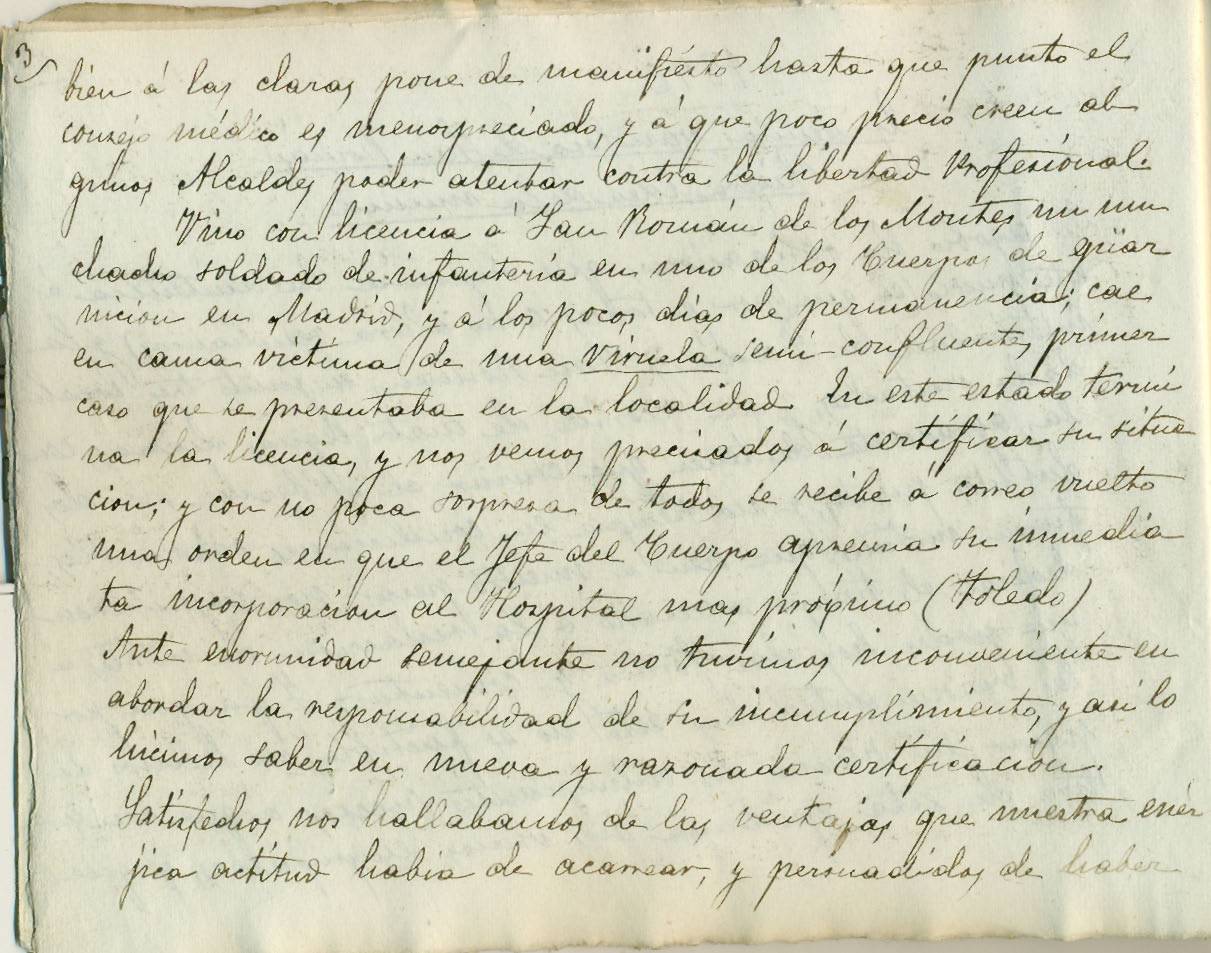 3
bien á las claras pone de manifiesto hasta que punto el
consejo médico es menospreciado, y á que poco precio creen al
gunos Alcaldes poder atentar contra la libertad profesional.
Vino con licencia á San Román de los Montes un mu
chacho soldado de infantería en uno de los Cuerpos de guar
nicion en Madrid, y á los pocos dias de permanencia; cae
en cama victima de una viruela semi-confluente, primer
caso que se presentaba en la localidad. En este estado termi
na la licencia, y nos vemos precisados á certificar su situa
cion; y con no poca sorpresa de todos se recibe á correo vuelto
una orden en que el Jefe del Cuerpo apremia su inmedia
ta incorporacion al Hospital mas próximo (Toledo)
Ante enormidad semejante no tuvimos inconveniente en
abordar la responsabilidad de su incumplimiento, y asi lo
hicimos saber en nueva y razonada certificacion.
Satisfechos nos hallabamos de las ventajas que nuestra enér
jica actitud habia de acarrear, y persuadidos de haber